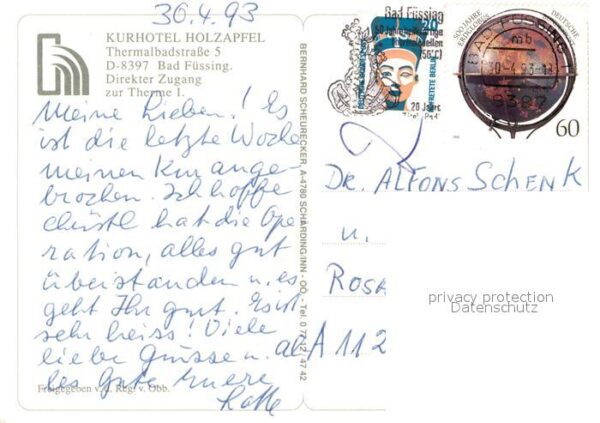 30.4.93
KURHOTEL HOLZAPFEL
Thermalbadstraße 5
D-8397 Bad Füssing.
Direkter Zugang
zur Therme I.
Meine Lieben! Es
ist die letzte Woche
meiner Kur ange-
brochen. Ich hoffe
Christl hat die Ope
ration, alles gut
überstanden u. es
geht Ihr gut. Es ist
sehr heiss! Viele
liebe Grüsse u. al
les Gute Eure
Freigegeben v. d. Reg. v. Obb.
BERNHARD SCHEURECKER, A-4780 SCHÄRDING/INN - OÖ. - Tel. 0 77 12 / 47 42
Bad Füssing
20
DEUTSCHE BUNDESPOST
NOFRETETE BERLIN
(56°C)
20 Jahre
500 JAHRE
ERDGLOBUS
DEUTSCHE
BAD FÜSSING 1
mb
30.-4.93-18
8397
60
DR. ALFONS SCHENK
u.
ROSA
A 112
privacy protection
Datenschutz